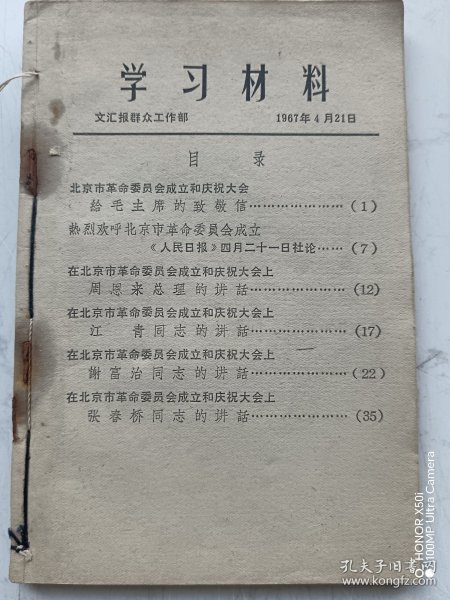 学习材料
文汇报群众工作部 1967年4月21日
目录
北京市革命委员会成立和庆祝大会
給毛主席的致敬信………………(1)
热烈欢呼北京市革命委员会成立
《人民日报》四月二十一日社论……(7)
在北京市革命委员会成立和庆祝大会上
周恩来总理的讲話…………………(12)
在北京市革命委员会成立和庆祝大会上
江青同志的讲話…………………(17)
在北京市革命委员会成立和庆祝大会上
謝富治同志的讲話…………………(22)
在北京市革命委员会成立和庆祝大会上
张春桥同志的讲話…………………(35)
HONOR X50i
100MP Ultra Camera
孔夫子旧书网
https://www.kongfz.com